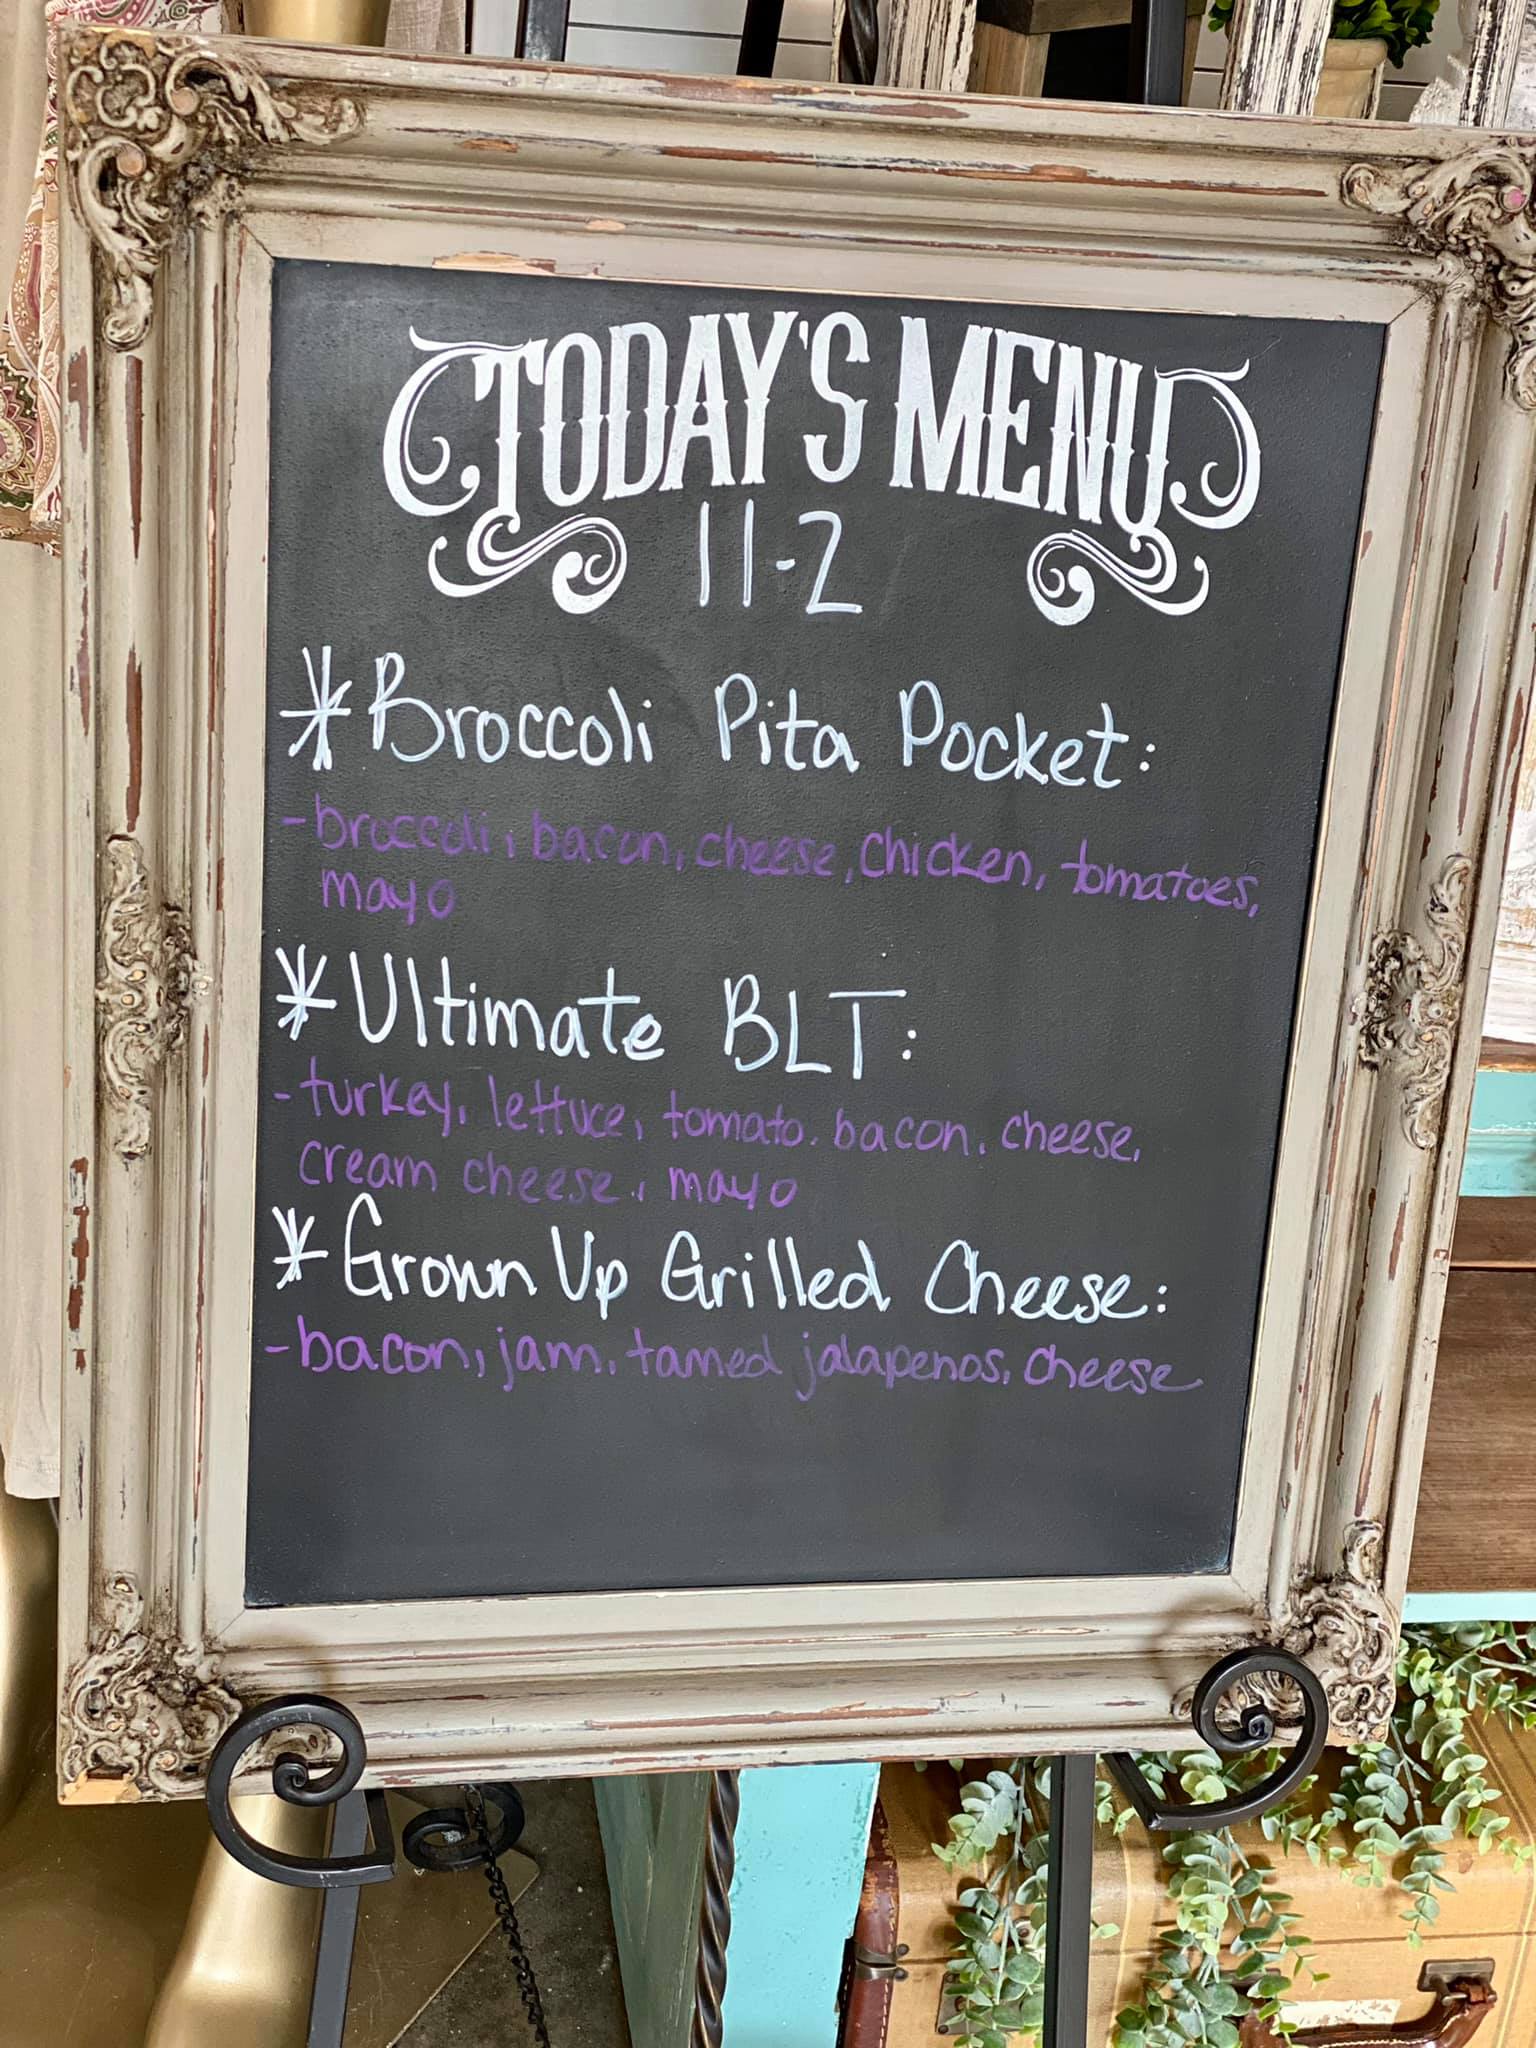 TODAY'S MENU
11-2
*Broccoli Pita Pocket:
-broccoli, bacon, cheese, chicken, tomatoes,
mayo
*Ultimate BLT:
-turkey, lettuce, tomato, bacon, cheese,
cream cheese, mayo
*Grown Up Grilled Cheese:
-bacon, jam, tamed jalapenos, cheese